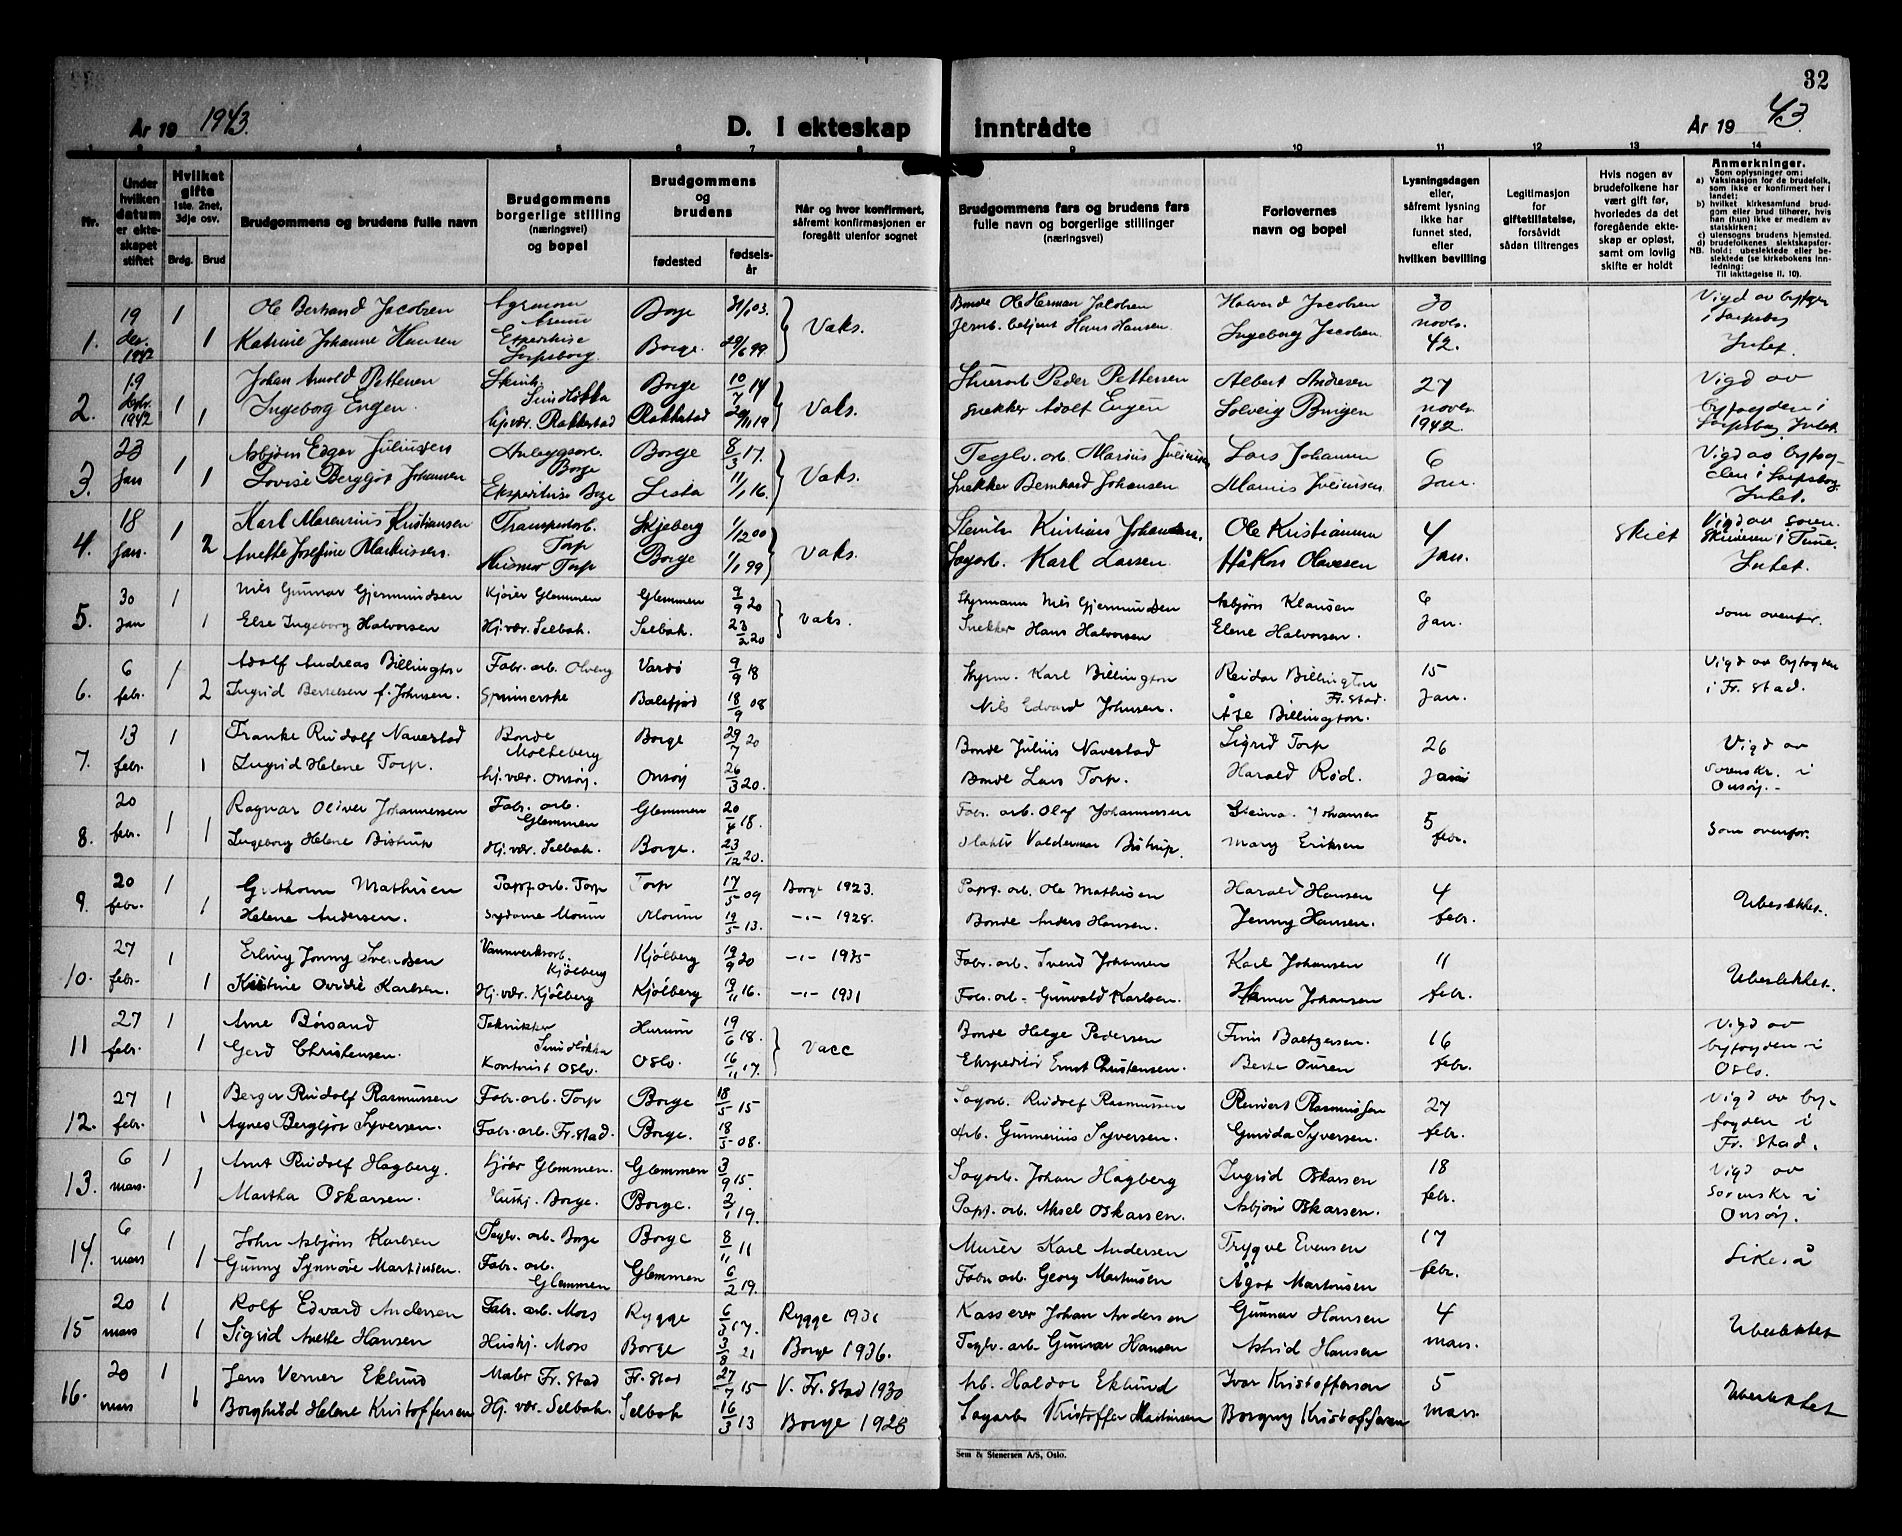 32
År 19 1943.
D. I ekteskap inntrådte
År 19 43.
1 2 3 4 5 6 7 8 9 10 11 12 13 14
Nr.
Under hvilken datum er ekteskapet stiftet
Hvilket gifte 1ste. 2net, 3dje osv.
Brdg. Brud
Brudgommens og brudens fulle navn
Brudgommens borgerlige stilling (næringsvei) og bopel
Brudgommens og brudens
fødested
fødsels-år
Når og hvor konfirmert, såfremt konfirmasjonen er foregått utenfor sognet
Brudgommens fars og brudens fars fulle navn og borgerlige stillinger (næringsvei)
Forlovernes navn og bopel
Lysningsdagen eller, såfremt lysning ikke har funnet sted, efter hvilken bevilling
Legitimasjon for giftetillatelse, forsåvidt sådan tiltrenges
Hvis nogen av brudefolkene har vært gift før, hvorledes da det foregående ekteskap er opløst, samt om lovlig skifte er holdt
Anmerkninger.
Som oplysninger om:
a) Vaksinasjon for de brudefolk, som ikke er konfirmert her i landet;
b) hvilket kirkesamfund brudgom eller brud tilhører, hvis han (hun) ikke er medlem av statskirken;
c) utensogns brudens hjemsted.
d) brudefolkenes slektskapsforhold: ubeslektede eller beslektede (se kirkebokens innledning:
NB. Til iakttagelse II. 10).
1. 19 des. 1942 1 Ole Bernhard Jacobsen Borge 31/1 03. Vaks. Bonde Ole Herman Jacobsen Halvard Jacobsen 30 novbr. 42. Vigd av byfogden i Sarpsborg
1 Katrine Johanne Hansen Sarpsborg Borge. 29/6 99. Jernb. betjent Hans Hansen. Ingeborg Jacobsen
2. 19 1942 1 Johan Arnold Pettersen Borge 10/7 14 Vaks. Peder Pettersen Albert Andresen 27 novbr. 1942 Vigd av byfogden i Sarpsborg
1 Ingeborg Engen. Hj.vær. Rakkestad Rakkestad 29/11 19 Snekker Adolf Engen Solveig
3. 23 Jan 1 Asbjørn Edgar Juliussen Anleggsarb. Borge Borge 8/3 17. Vaks. Teglv. arb. Marius Juliussen Lars Johansen 6 Jan. Vigd av byfogden i Sarpsborg
1 Lovise Bergljot Johansen Borge Lista 11/1 16. Snekker Bernhard Johansen
4. 18 Jan. 1 Karl Marenius Kristiansen Transportarb. Torp Skjeberg 1/12 00 Vaks. Kristian Johansen. Ole Kristiansen 4 Jan. Skilt Vigd av soren-skriveren i Tune.
2 Anette Josefine Markussen. Husmor Torp Borge 1/1 99 Sagarb. Karl Larsen Håkon Olavesen
5. 30 Jan 1 Nils Gunnar Gjermundsen Kjører Glemmen Glemmen 9/9 20 Vaks. Styrmann Nils Gjermundsen Asbjørn Klausen 6 Jan. Som ovenfor.
1 Else Ingeborg Halvorsen Hj.vær. Selbak. Selbak. 23/2 20 Snekker Hans Halvorsen Elene Halvorsen.
6. 6 febr. 1 Adolf Andreas Billington Fabr. arb. Vardø 9/9 18 Styrm. Karl Billington Reidar Billington Fr.stad. 15 Jan. Vigd av byfogden i Fr. stad.
2 Ingrid Bertelsen f. Johnsen. Spinnerske Balsfjord 18/9 08 Nils Edvard Johnsen. Åse Billington.
7. 13 febr. 1 Franke Rudolf Navestad Bonde Molteberg Borge 29/7 20 Bonde Julius Navestad Sigrid Torp 26 Jan Vigd av Sorenskr. i Onsøy.
1 Ingrid Helene Torp. Hj.vær. Onsøy. Onsøy 26/3 20. Bonde Lars Torp. Harald Rød.
8. 20 febr. 1 Ragnar Oliver Johannessen Fabr. arb. Glemmen Glemmen 20/4 18. Fabr. arb. Olaf Johannessen Johansen 5 febr. Som ovenfor.
1 Ingeborg Helene Bistrup Hj.vær. Selbak. Borge. 23/12 20. Valdemar Bistrup. Mary Eriksen
9. 20 febr. 1 Guthorm Mathisen Papf. arb. Torp Torp 17/5 09 Borge 1923. Papf. arb. Ole Mathisen Harald Hansen 4 febr. Ubeslektet.
1 Helene Andersen. Sydame Moum Moum 19/5 13. -"- 1928. Bonde Anders Hansen. Jenny Hansen.
10. 27 febr. 1 Erling Jonny Svendsen Vannverksarb. Kjølberg Kjølberg 19/9 20 -"- 1935 Fabr. arb. Svend Johansen Karl Johansen 11 febr. Ubeslektet.
1 Kristine Ovidie Karlsen. Hj.vær. Kjølberg Kjølberg 19/11 16. -"- 1931 Fabr. arb. Gunvald Karlsen. Johansen
11 27 febr. 1 Arne Børsand Tekniker Hurum 19/6 18. Vacc Bonde Helge Pedersen Finn Baetzersen. 16 febr. Vigd av byfogden i Oslo.
1 Gerd Christensen. Kontorist Oslo. Oslo. 16/11 17. Ekspeditør Ernst Christensen. Berte Ouren
12. 27 febr. 1 Berger Rudolf Rasmussen Fabr. arb. Torp Borge 18/5 15 Sagarb. Rudolf Rasmussen Reinert Rasmussen 27 febr. Vigd av by-fogden i Fr. stad.
1 Agnes Bergljot Syversen. Fabr. arb. Fr.stad. Borge. 18/5 08. Arb. Gunnerius Syversen. Syversen.
13. 6 mars. 1 Arnt Rudolf Hagberg. Kjører Glemmen. Glemmen 3/9 15. Sagarb. Johan Hagberg Ingrid Oskarsen 18 febr. Vigd av Sorenskr i Onsøy.
1 Martha Oskarsen. Hushj. Borge. Borge. 2/1 19. Papf. arb. Aksel Oskarsen. Asbjørn Oskarsen.
14. 6 mars 1 John Asbjørn Karlsen Teglv. arb. Borge Borge 8/11 11 Murer Karl Andersen Trygve Evensen 17 febr. Likeså
1 Gunny Synnøve Martinsen. Fabr. arb. Glemmen Glemmen 6/2 19. Fabr. arb. Georg Martinsen Ågot Martinsen
15 20 mars 1 Rolf Edvard Andersen Fabr. arb. Moss Rygge 6/3 17. Rygge 1931 Kasserer Johan Andersen Gunnar Hansen 4 mars. Ubeslektet
1 Sigrid Anette Hansen Hushj. Moss Borge 3/8 21 Borge 1936. Teglv. arb. Gunnar Hansen Astrid Hansen
16. 20 mars 1 Jens Verner Eklund Maler Fr. stad Fr. stad 27/7 15 V. Fr. stad 1930 Arb. Haldor Eklund Ivar Kristoffersen 5 mars. Ubeslektet
1 Borghild Helene Kristoffersen Hj. vær. Selbak. Selbak 16/3 13 Borge 1928 Sagarb. Kristoffer Martinsen Borgny Kristoffersen
Sem & Stenersen A/S, Oslo.